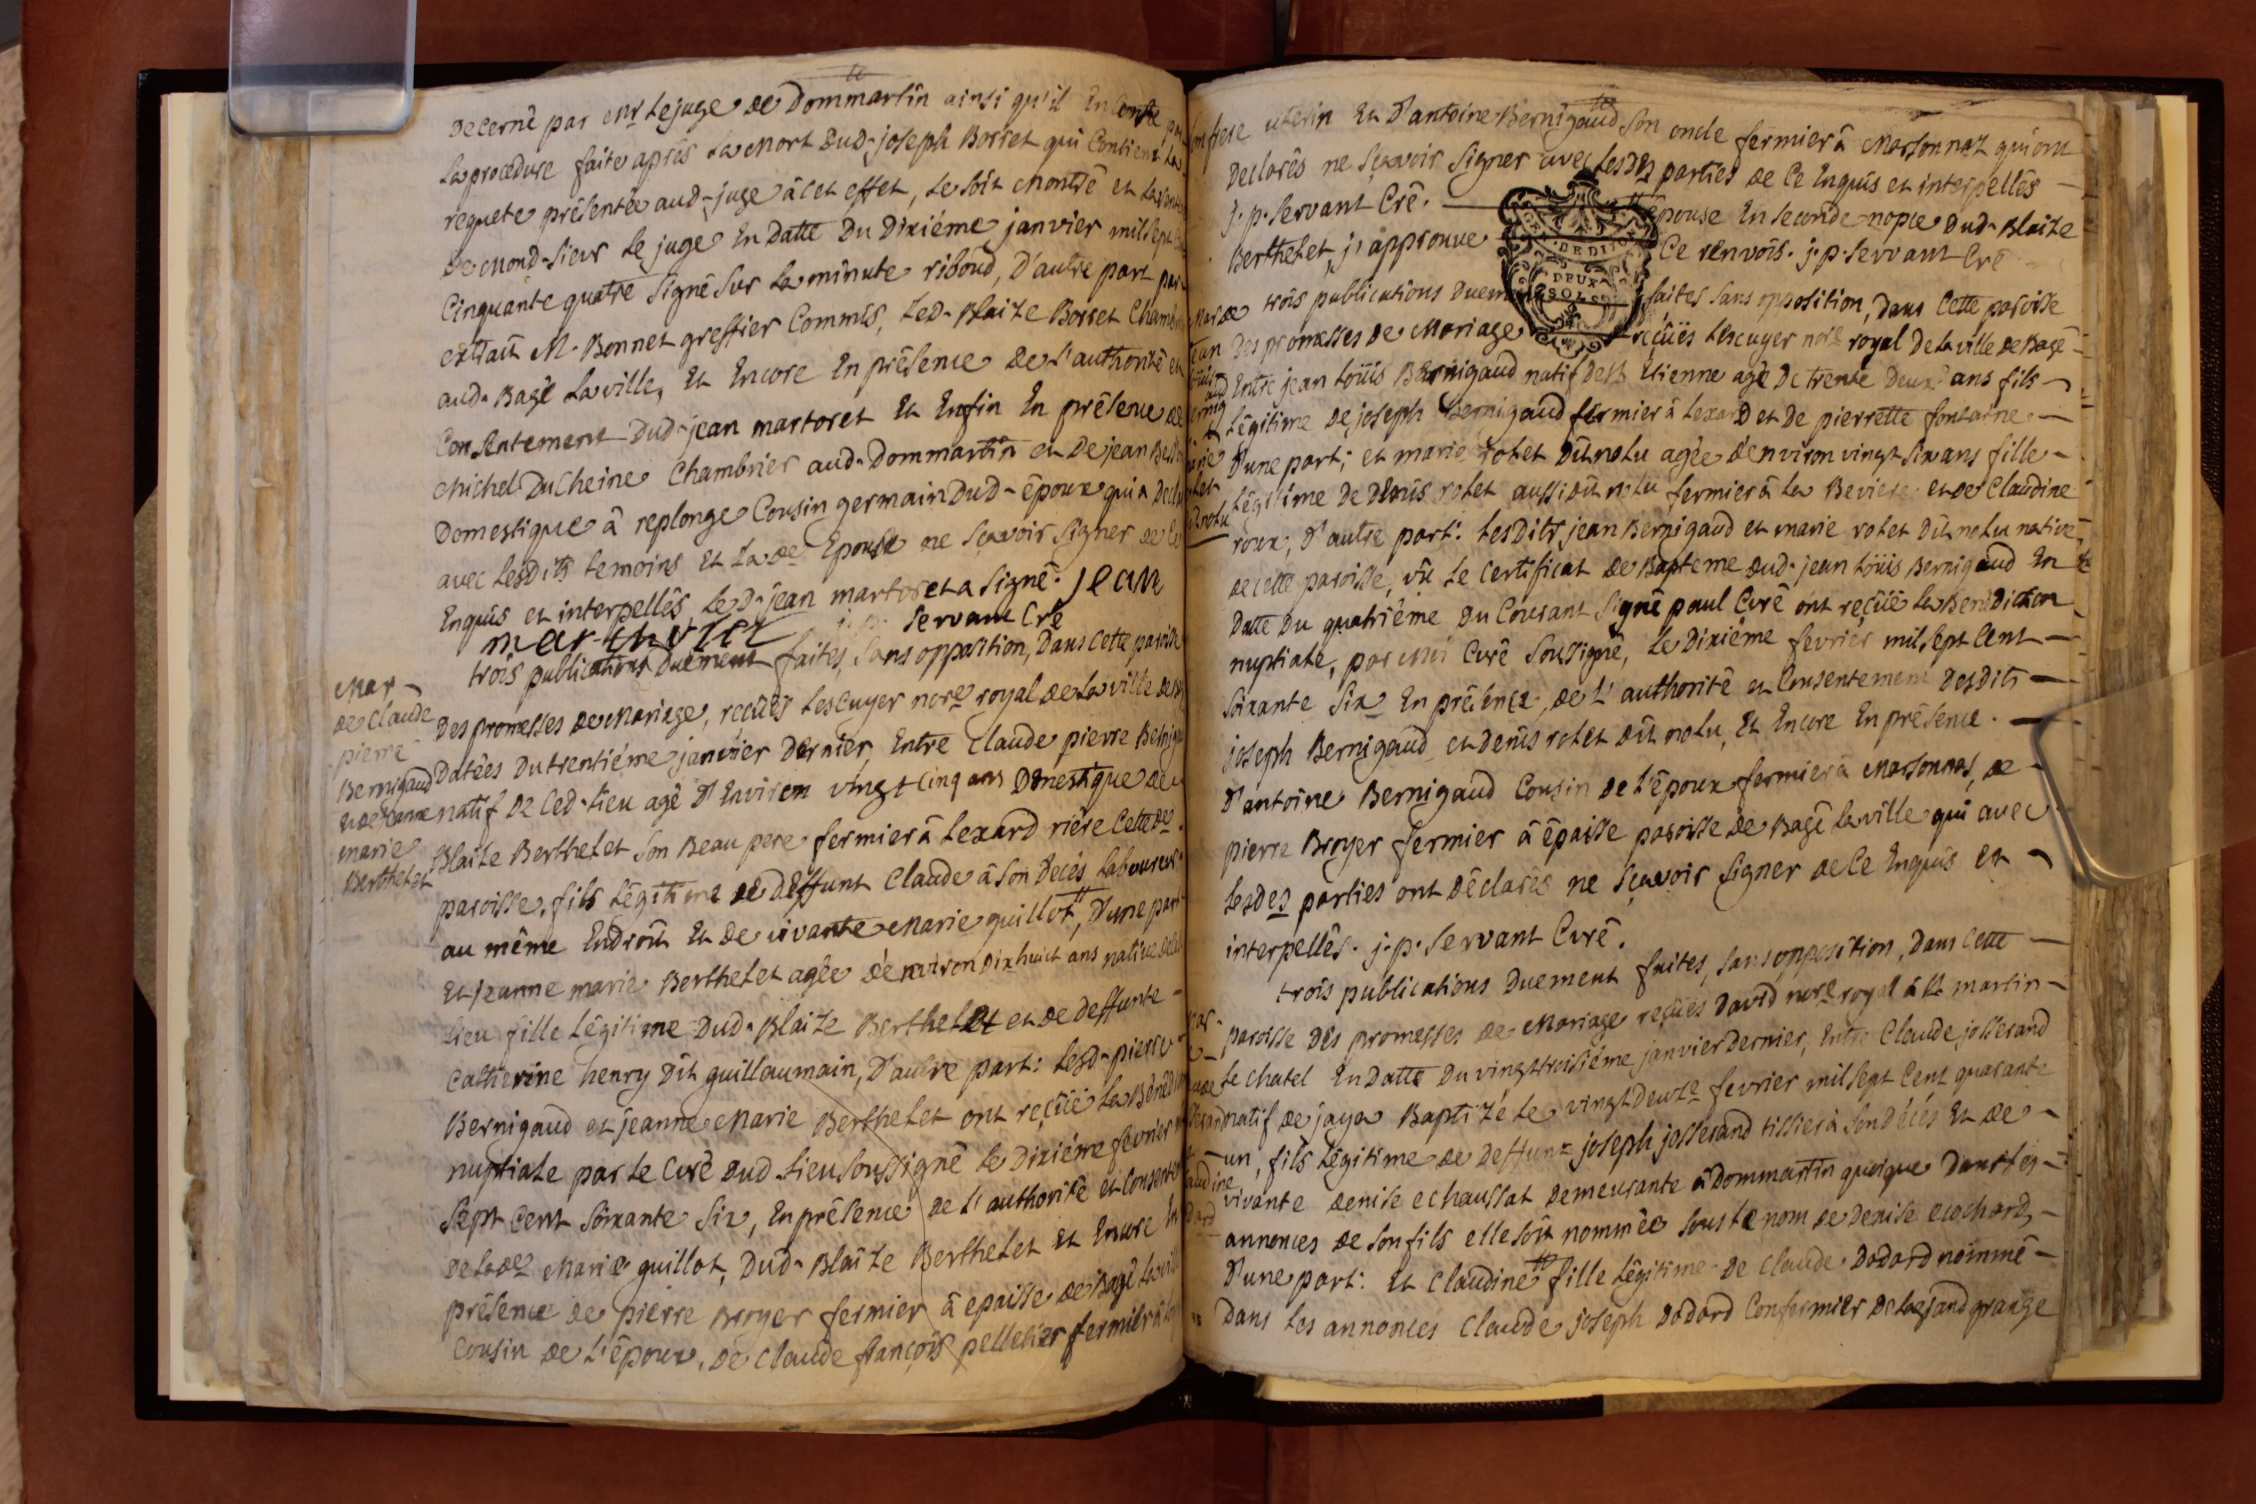 decerné par Mr le juge de Dommartin ainsi qu'il en conste par
la procedure faite aprés la mort dud. joseph Borret qui contient la
requete présentée aud. juge à cet effet, le soit montré et la
de mond. sieur le juge en datte du dixiéme janvier mil sept
cinquante quatre signé sur la minute riboud, d'autre part par
extrait M. Bonnet greffier commis, led. Blaize Borret
aud. Bagé la ville, et encore en présence de l'authorité et
consentement dud. jean martoret et enfin en présence de
michel Ducheine chambrier aud. Dommartin et de jean
domestique à replonge cousin germain dud. époux qui a
avec lesdits temoins et la de epouse ne sçavoir signer de ce
enquis et interpellés led. jean martoret a signé. jean
j. p. servant Cré
Mar-
de claude
pierre
Bernigaud
et de jeanne
marie
Berthelet
trois publications duement faites, sans opposition, dans cette paroisse
des promesses de mariage, reçües Lescuyer nore royal de la ville de
datées du trentiéme janvier dernier, entre claude pierre
natif de ced. lieu agé d'environ vingt cinq ans domestique de
Blaize Berthelet son beau pere fermier à Lexard riére cette de
paroisse, fils légitime de deffunt claude à son decés laboureur
au même endroit et de vivante marie guillot, d'une part
et jeanne marie Berthelet agée d'environ dix huict ans native
lieu fille légitime dud. Blaize Berthelet et de deffunte
Catherine henry dit guillaumain, d'autre part: lesd. pierre
Bernigaud et jeanne marie Berthelet ont reçüe la
nuptiale par le Curé dud. lieu soussigné le dixiéme fevrier
sept cent soixante six, en présence de l'authorité et
de lade marie guillot, dud. Blaize Berthelet et encore en
présence de pierre Broyer fermier à epaisse de Bagé la ville
cousin de l'époux, de claude françois pelletier fermier à
son frere uterin et d'antoine Bernigaud son oncle fermier à Marsonnaz qui ont
declarés ne sçavoir signer avec lesdes parties de ce enquis et interpellés
j. p. servant Cré.
épouse en seconde nopce dud. Blaize
Berthelet, j'approuve ce renvois. j. p. servant Cré
DEUX
SOLS
Mar de
jean
marie
rolet
dit nolu
trois publications duement faites sans opposition, dans cette paroisse
des promesses de mariage reçües Lescuyer nore royal de la ville de Bagé
entre jean loüis Bernigaud natif de St Etienne agé de trente deux ans fils
légitime de joseph Bernigaud fermier à Lexard et de pierrette fontaine
d'une part; et marie rolet dit nolu agée d'environ vingt six ans fille
légitime de denis rolet aussi dit nolu fermier à la Beviere et de Claudine
roux, d'autre part: lesdits jean Bernigaud et marie rolet dit nolu native
de cette paroisse, vû le certificat de Bapteme dud. jean loüis Bernigaud en
datte du quatriéme du courant signé paul Curé ont reçüe la Benediction
nuptiale, par moi Curé soussigné, le dixiéme fevrier mil sept cent
soixante six en présence, de l'authorité et consentement desdits
joseph Bernigaud et denis rolet dit nolu, et encore en présence.
d'antoine Bernigaud cousin de l'époux fermier à Marsonnas, de
pierre Broyer fermier à épaisse paroisse de Bagé la ville qui avec
lesdes parties ont déclarés ne sçavoir signer de ce enquis et
interpellés. j. p. servant Curé.
trois publications duement faites, sans opposition, dans cette
paroisse des promesses de mariage reçües David nore royal à St martin
le chatel en datte du vingt troisiéme janvier dernier, entre Claude josserand
natif de jaya Baptizé le vingt deuze fevrier mil sept cent quarante
un, fils légitime de deffunt joseph josserand tissier à son décés et de
vivante denise echaussat demeurante à Dommartin quoique dans les
annonces de son fils elle soit nommée sous le nom de denise ecochard,
d'une part: et claudine fille légitime de claude Dodard nommé
dans les annonces claude joseph Dodard confermier de la grand grange